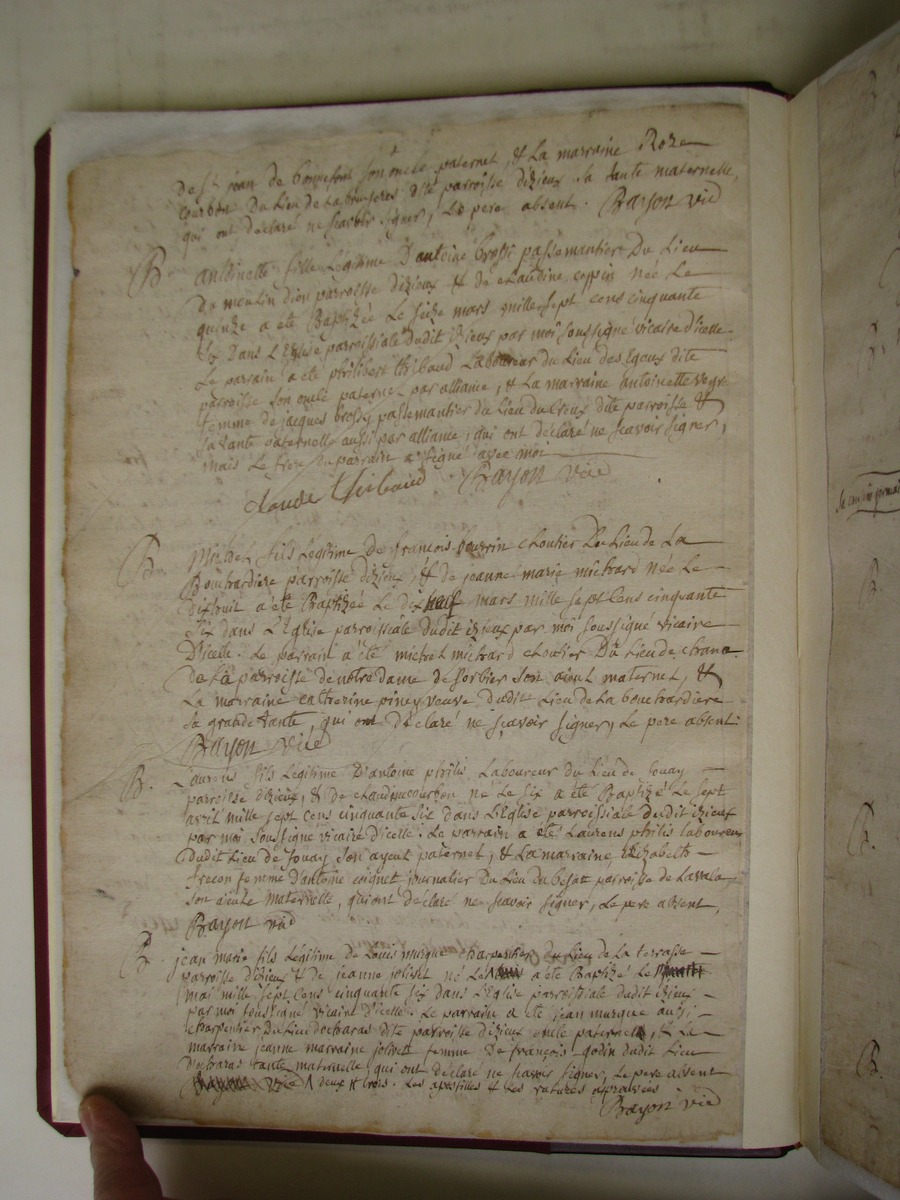 de st jean de bonnefont son oncle paternel, & La marraine Roze
Courbon Du Lieu de La bruyeres dite parroisse dizieux sa tante maternelle,
qui ont declaré ne scavoir signer, Le pere absent. Bayon vic
B. antoinette fille Legitime D'antoine brossi passemantier Du Lieu
Du moulin dion parroisse dizieux & de claudine coppin née Le
quinze a eté Baptizée Le seize mars mille sept cens cinquante
six Dans L'Eglise parroissiale dudit izieux par moi soussigné vicaire d'icelle.
Le parrain a eté philibert thibaud Laboureur du Lieu des Egaux dite
parroisse son oncle paternel par alliance, & La marraine antoinette
femme de jacques brossy passemantier du Lieu du Creux dite parroisse &
sa tante paternelle aussi par alliance, qui ont declaré ne scavoir signer,
mais Le frere du parrain a signé avec moi
claude thibaud Bayon vic
B. Michel fils Legitime De francois bourrin cloutier Du Lieu de La
Bouchardiere parroisse dizieux, & de jeanne marie michard née Le
dixhuit a été Baptizée Le dix neuf mars mille sept Cens cinquante
six dans L'Eglise parroissiale dudit izieux par moi soussigné vicaire
D'icelle. Le parrain a été michel michard cloutier Du Lieu de
de La parroisse de notre dame de sorbier son aieul maternel, &
La marraine catherine piney veuve dudit Lieu de La bouchardiere
sa grande tante, qui ont declaré ne sçavoir signer, Le pere absent.
Bayon vic
B. Laurens fils Légitime D'antoine philis Laboureur du Lieu de Jouay
parroisse dizieux, & de claudine courbon né Le six a eté Baptizé Le sept
avril mille sept cens cinquante six dans L'Eglise parroissiale dudit izieux
par moi soussigné vicaire d'icelle. Le parrain a eté Laurens philis laboureur
dudit Lieu de Jouay son ayeul paternel, & La marraine Elizabeth
frecon femme D'antoine coignet journalier Du Lieu du besat parroisse de Lavala
son aieule maternelle, qui ont declaré ne scavoir signer, Le pere absent,
Bayon vic
B. jean marie fils Légitime de Louis murgue charpentier du Lieu de La terrasse
parroisse dizieux & de jeanne né Le a eté Baptizé Le
mai mille sept Cens cinquante six dans L'Eglise parroissiale dudit izieux
par moi soussigné vicaire d'icelle. Le parrain a eté jean murgue aussi
charpentier du Lieu dite parroisse dizieux oncle paternel, & La
marraine jeanne marraine femme De françois godin dudit Lieu
tante maternelle, qui ont déclaré ne scavoir signer, Le pere absent
vic deux & trois. Les apostilles & Les ratures approuvées
Bayon vic